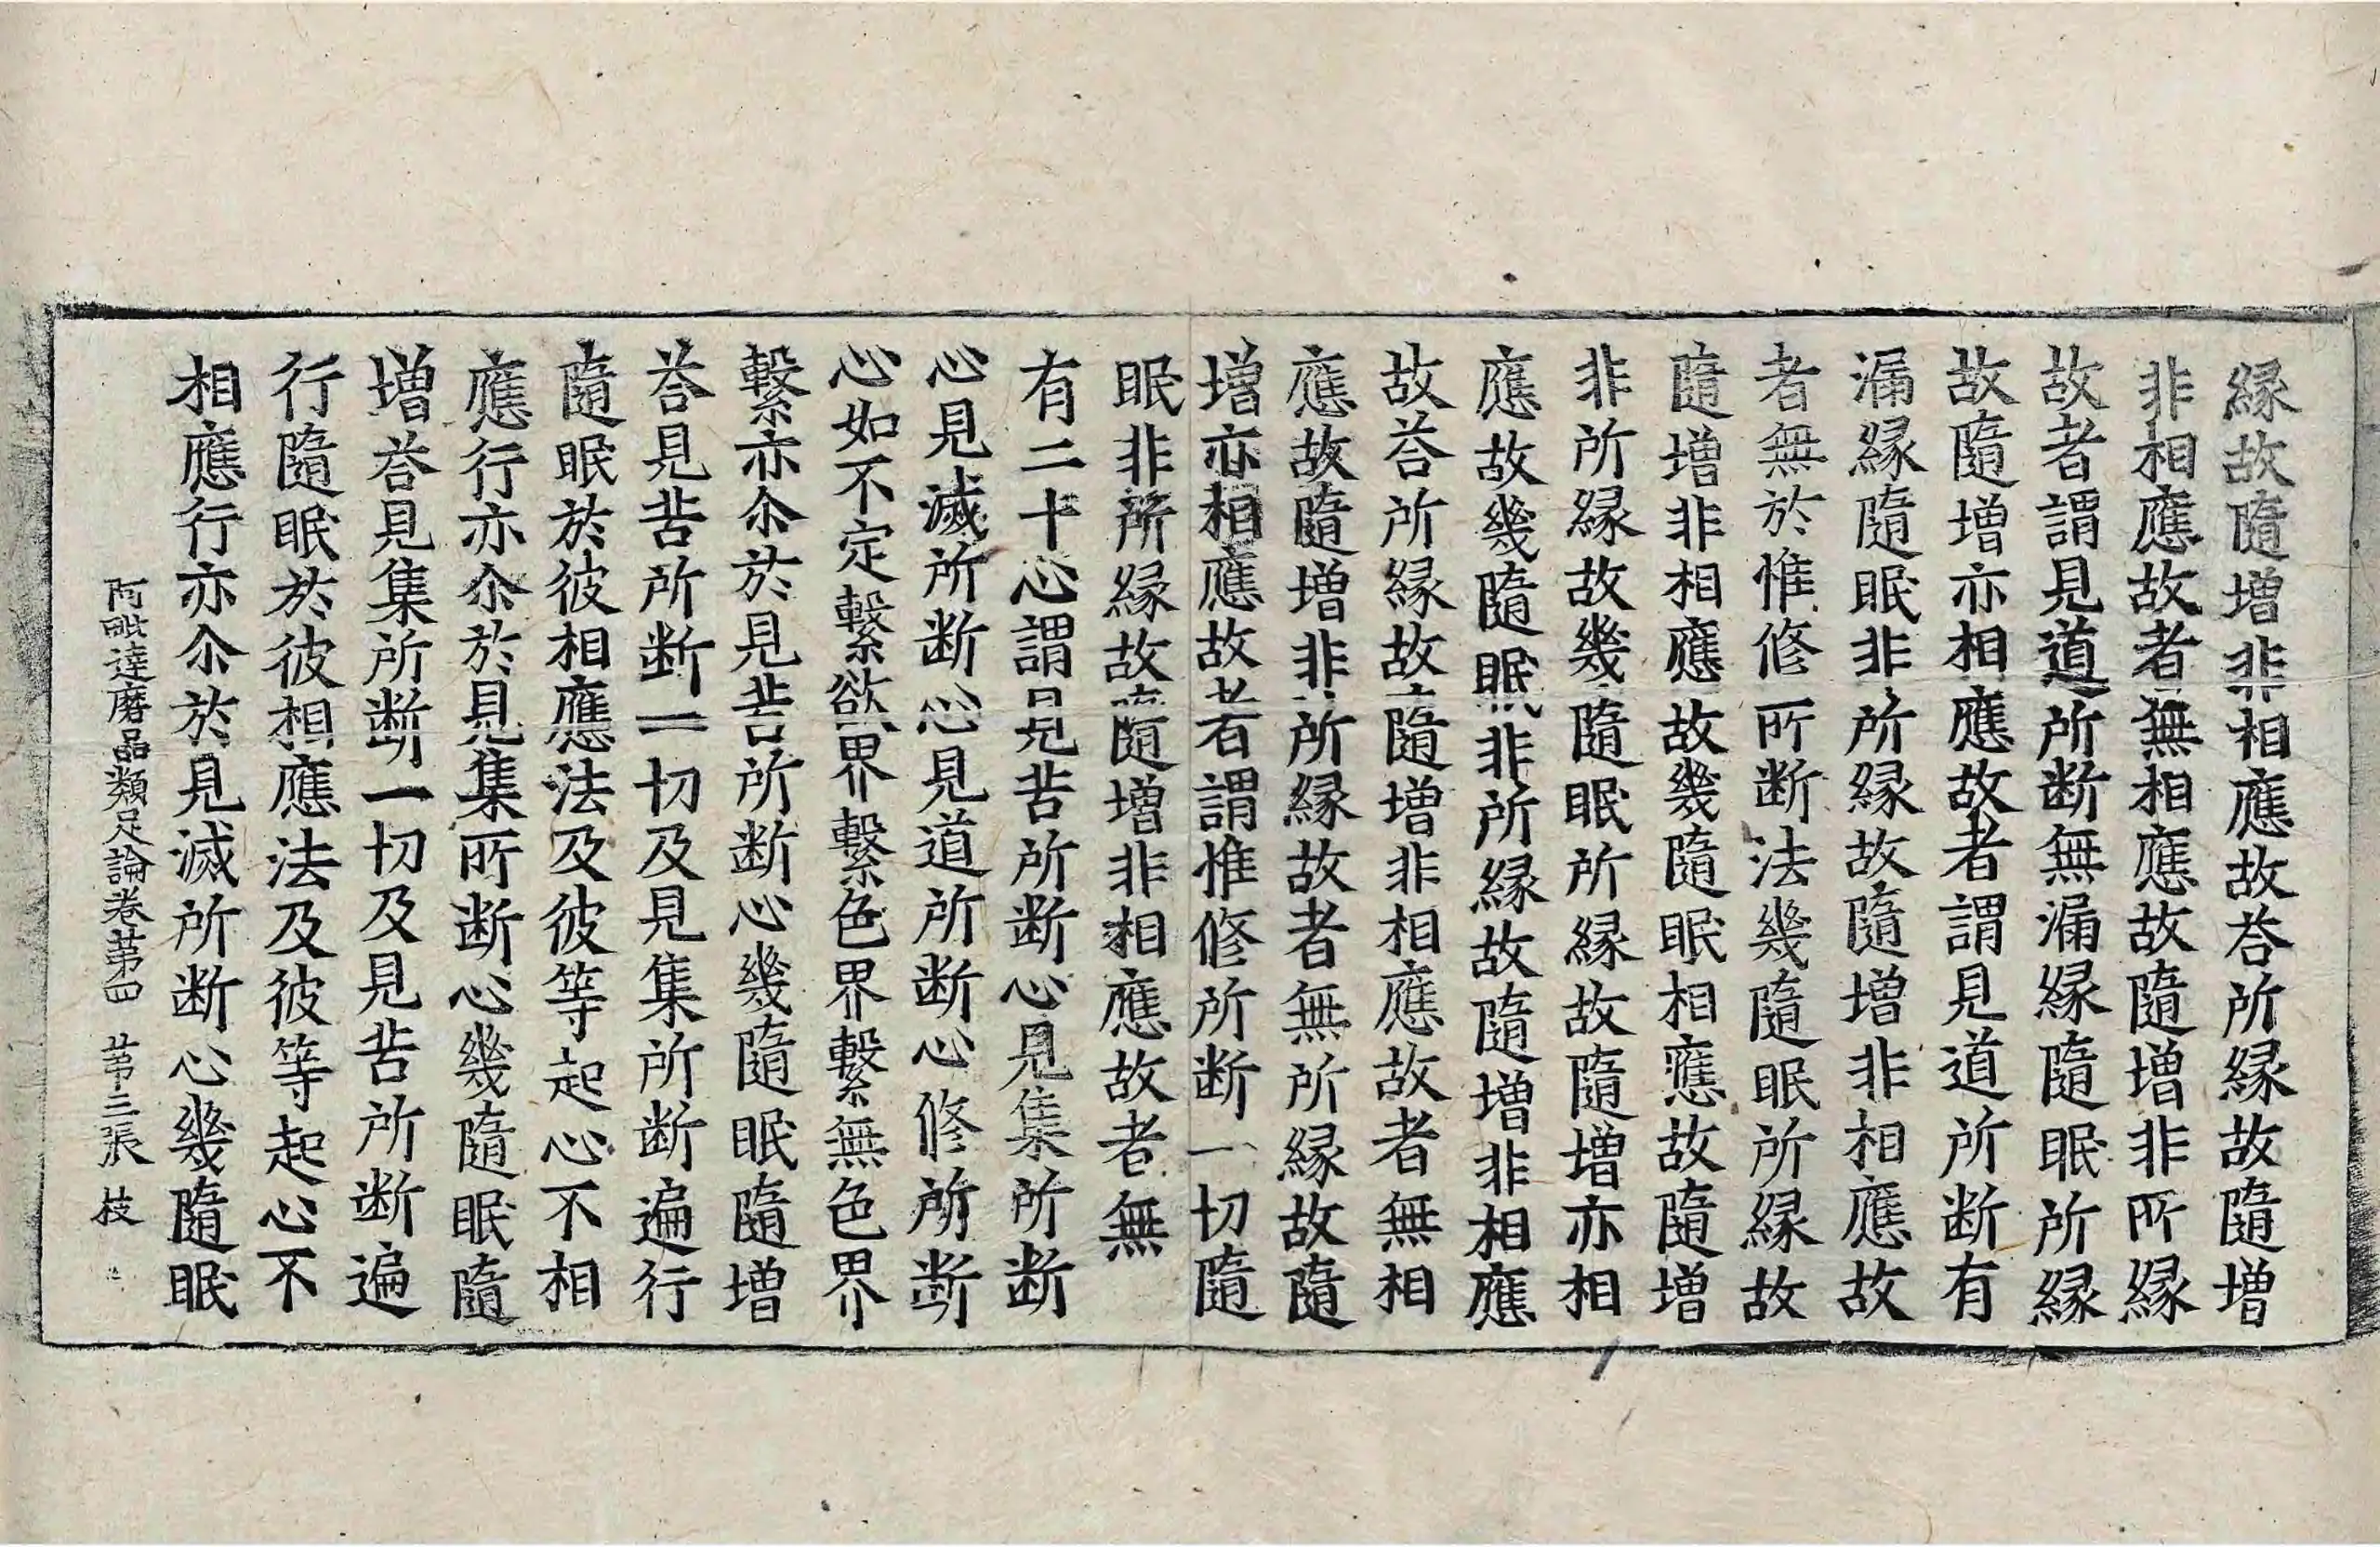 縁故隨増非相應故荅所縁故隨増
非相應故者無相應故隨増非所縁
故者謂見道所断無漏縁隨眠所縁
故隨増亦相應故者謂見道所断有
漏縁隨眠非所縁故隨増非相應故
者無於惟修所断法幾隨眠所縁故
隨増非相應故幾隨眠相應故隨増
非所縁故幾隨眠所縁故隨増亦相
應故幾隨眠非所縁故隨増非相應
故荅所縁故隨増非相應故者無相
應故隨増非所縁故者無所縁故隨
増亦相應故者謂惟修所断一切隨
眠非所縁故隨増非相應故者無
有二十心謂見苦所断心見集所断
心見滅所断心見道所断心修所断
心如不定繫欲界繫色界繫無色界
繫亦尒於見苦所断心幾隨眠隨増
荅見苦所断一切及見集所断遍行
隨眠於彼相應法及彼等起心不相
應行亦尒於見集所断心幾隨眠隨
増荅見集所断一切及見苦所断遍
行隨眠於彼相應法及彼等起心不
相應行亦尒於見滅所断心幾隨眠
阿毗達磨品類足論卷第四 第三張 枝